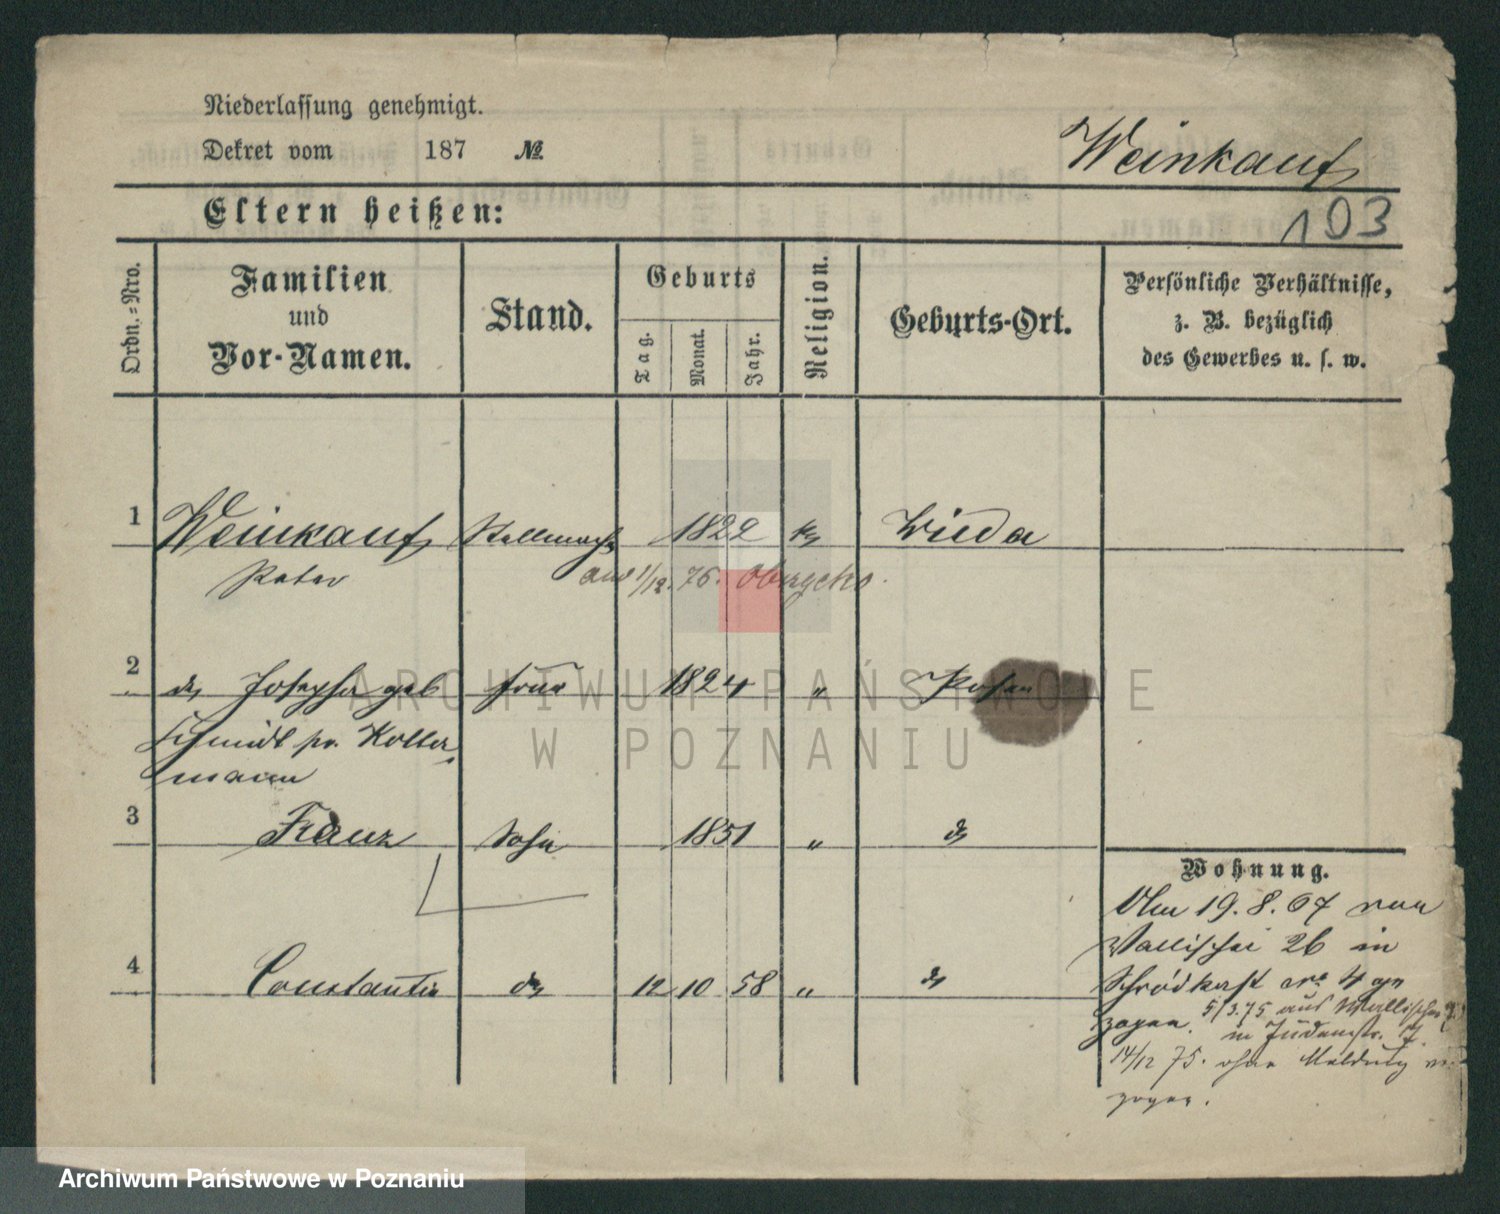 Niederlassung genehmigt.
Dekret vom 187 №
Weinkauf
Eltern heißen:
103
Ordn.-Nro.
Familien
und
Vor-Namen.
Stand.
Geburts
Tag.
Monat.
Jahr.
Religion.
Geburts-Ort.
Persönliche Verhältnisse,
z. B. bezüglich
des Gewerbes u. s. w.
1 Weinkauf Stellmach 1822 k Wieda
Peter 1/12. 75.
2 Josepha geb Frau 1824 " Posen
Schmidt pr. Kolter
mann
3 Franz Sohn 1851 " do
4 Constantin do 12 10 58 " do
Wohnung.
Am 19. 8. 67 von
Wallischei 26 in
4 ge
zogen. 5/3.75 aus Wallischei
in Judenstr. 7.
14/12 75. ohne Meldung
zogen.
ARCHIWUM PAŃSTWOWE
W POZNANIU
Archiwum Państwowe w Poznaniu